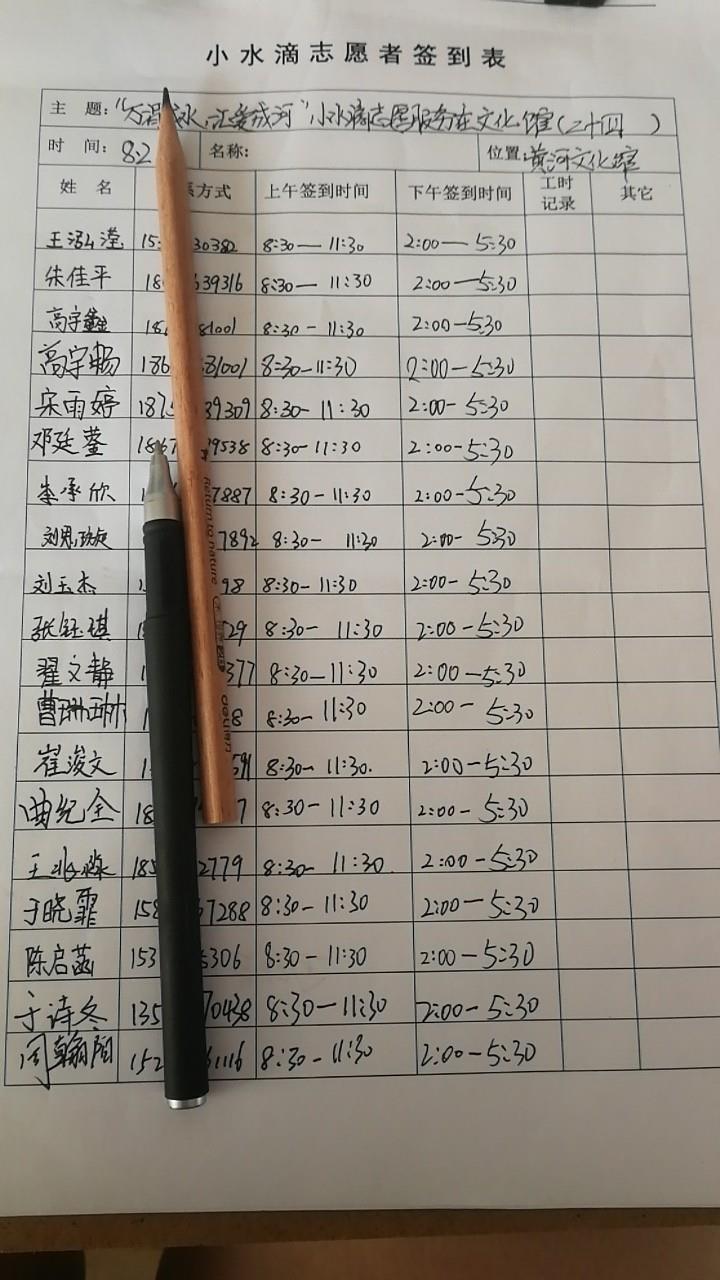 小水滴志愿者签到表
主 题: 水,汇爱成河"小水滴志愿服务在文化馆(二十四 )
时 间: 8.2 名称: 位置: 黄河文化馆
姓 名 系方式 上午签到时间 下午签到时间 工时记录 其它
王泓滢 15 30382 8:30—11:30 2:00—5:30
朱佳平 18 39316 8:30—11:30 2:00—5:30
高宇鑫 18 81001 8:30-11:30 2:00-5:30
高宇畅 186 81001 8:30-11:30 2:00-5:30
宋雨婷 187 39309 8:30-11:30 2:00-5:30
邓廷蓥 1867 9538 8:30-11:30 2:00-5:30
李承欣 7887 8:30-11:30 2:00-5:30
刘思璇 7892 8:30-11:30 2:00-5:30
刘玉杰 98 8:30-11:30 2:00-5:30
张钰琪 529 8:30-11:30 2:00-5:30
翟文静 377 8:30-11:30 2:00-5:30
曹珊琳 8 8:30-11:30 2:00-5:30
崔浚文 591 8:30-11:30. 2:00-5:30
曲纪全 18 7 8:30-11:30 2:00-5:30
王 185 2779 8:30-11:30. 2:00-5:30
于晓霏 158 67288 8:30-11:30 2:00-5:30
陈启菡 153 5306 8:30-11:30 2:00-5:30
于诗冬 135 70438 8:30-11:30 2:00-5:30
周翰阳 152 61116 8:30-11:30 2:00-5:30
Return to nature
deli